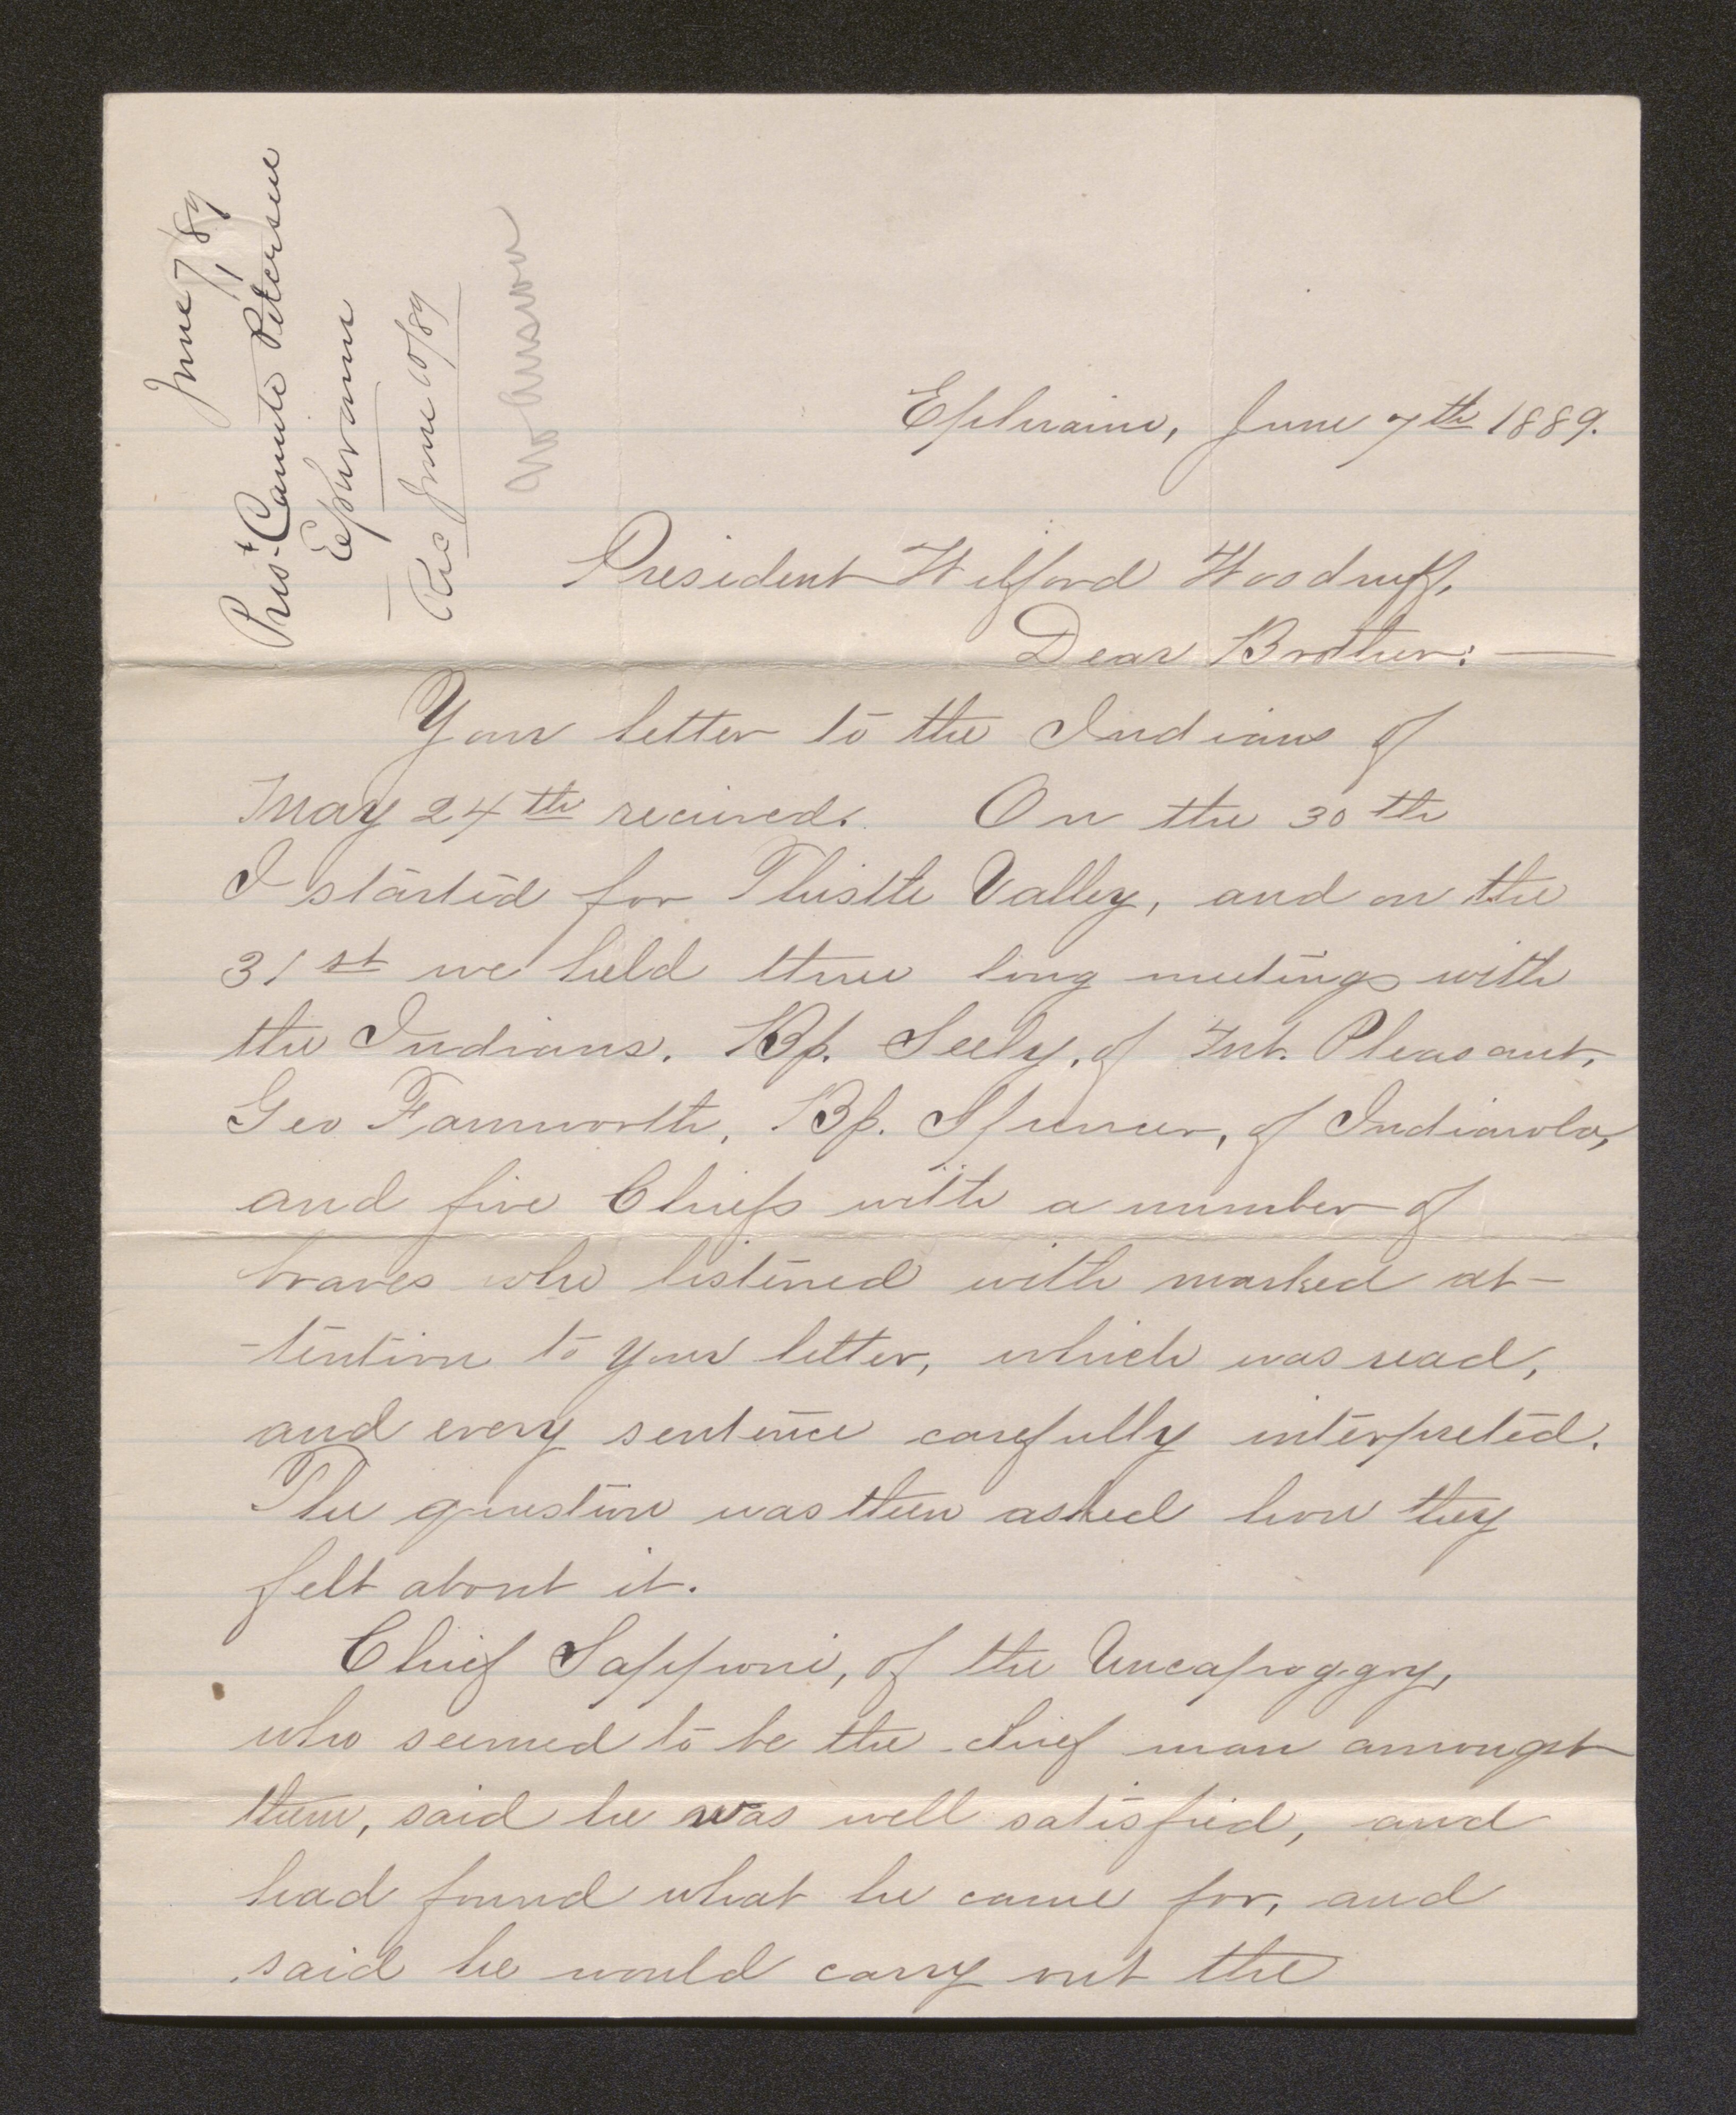 June 7/89
Prest Canute Peterson
Ephraim
Rec June 10/89
No answer
Ephraim, June 7th 1889.
President Wilford Woodruff,
Dear Brother: —
Your letter to the Indians of
May 24th recieved. On the 30th
I started for Thistle Valley, and on the
31st we held three long meetings with
the Indians. Bp. Seely, of Mt. Pleasant,
Geo Farnworth, Bp. Spencer, of Indianola,
and five Chiefs with a number of
braves who listened with marked at-
-tention to your letter, which was read,
and every sentence carefully interpreted.
The question was then asked how they
felt about it.
Chief Sapponi, of the
who seemed to be the chief man amongst
them, said he was well satisfied, and
had found what he came for, and
said he would carry out the